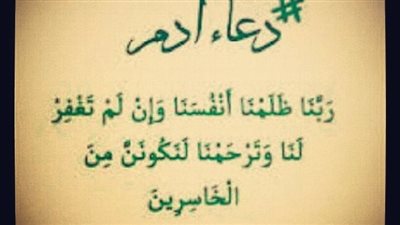 #دعاء أدم
رَبَّنَا ظَلَمْنَا أَنْفُسَنَا وَإِنْ لَمْ تَغْفِرْ
لَنَا وَتَرْحَمْنَا لَنَكُونَنَّ مِنَ
الْخَاسِرِينَ